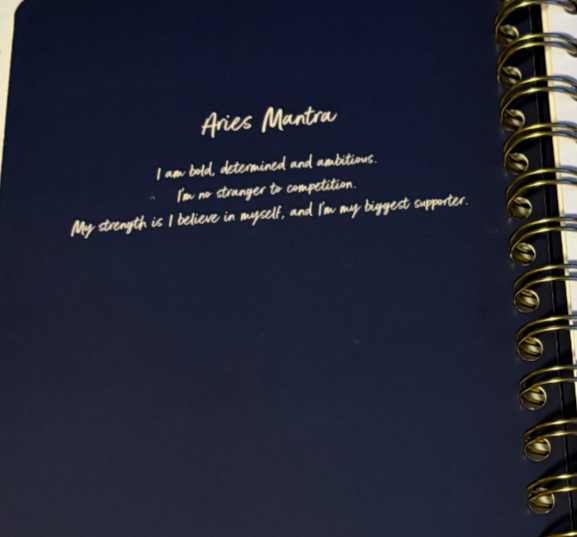 Aries Mantra
I am bold, determined and ambitious.
I'm no stranger to competition.
My strength is I believe in myself, and I'm my biggest supporter.